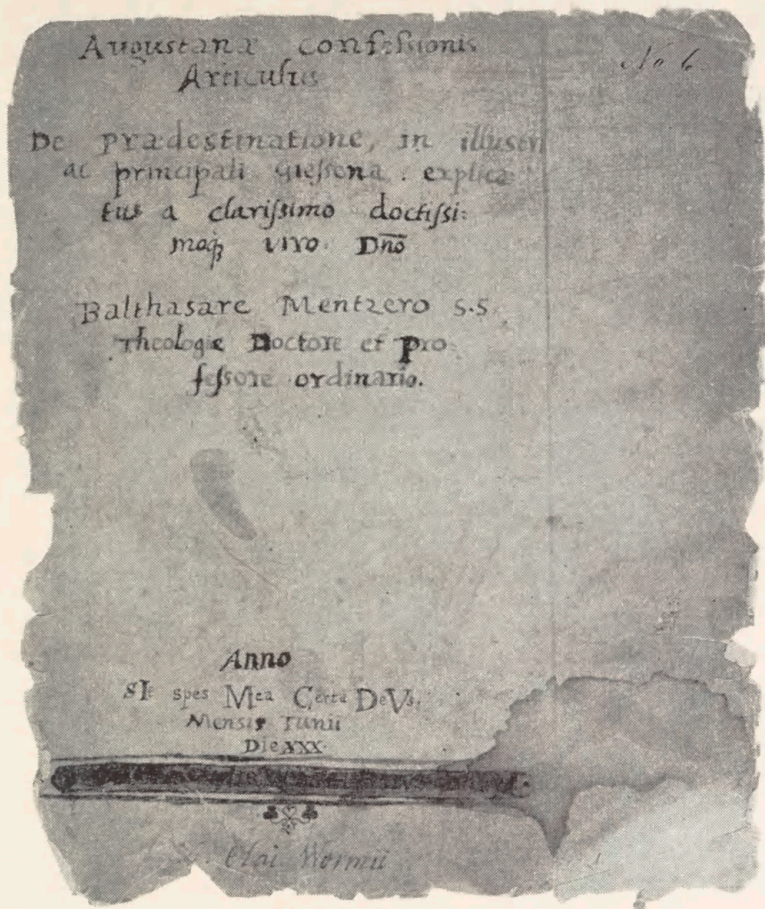 Augustanæ confeſsionis
Articulus
No 6.
De prædestinatione, in illustri
ac principali Gieſsena . explica
tus a clariſsimo doctiſsi:
moq́ꝫ viro Dn̄o
Balthasare Mentzero s.s.
Theologiæ Doctore et pro
feſsore ordinario.
Anno
SIt spes Mea Certa DeVs.
Mensis Iunii
Die XXX.
Olai Wormii